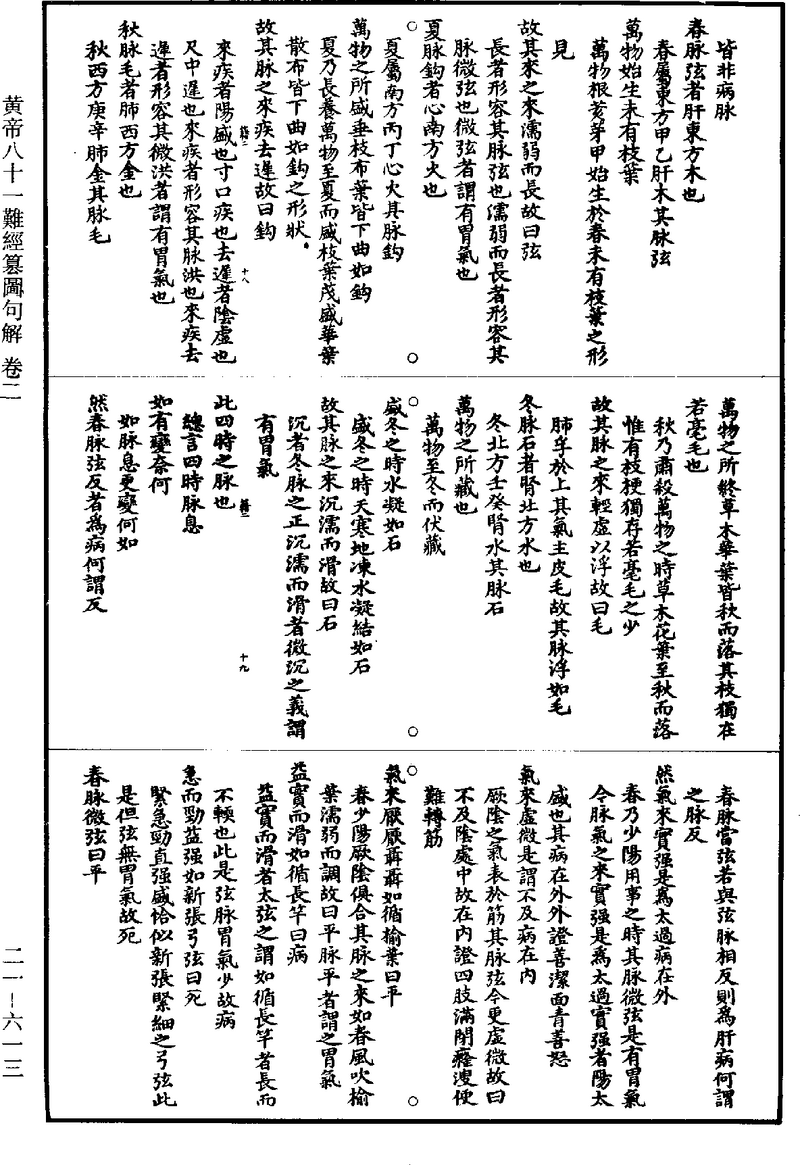 黄帝八十一難經纂圖句解 卷二
皆非病脉
春脉弦者肝東方木也
春屬東方甲乙肝木其脉弦
萬物始生未有枝葉
萬物根荄芽甲始生於春未有枝葉之形
見
故其來之來濡弱而長故曰弦
長者形容其脉弦也濡弱而長者形容其
脉微弦也微弦者謂有胃氣也
夏脉鈎者心南方火也
夏屬南方丙丁心火其脉鈎
萬物之所盛垂枝布葉皆下曲如鈎
夏乃長養萬物至夏而盛枝葉茂盛華葉
散布皆下曲如鈎之形狀
故其脉之來疾去遲故曰鈎
來疾者陽盛也寸口疾也去遲者陰虛也
尺中遲也來疾者形容其脉洪也來疾去
遲者形容其微洪者謂有胃氣也
秋脉毛者肺西方金也
秋西方庚辛肺金其脉毛
十八
萬物之所終草木華葉皆秋而落其枝獨在
若毫毛也
秋乃肅殺萬物之時草木花葉至秋而落
惟有枝梗獨存若毫毛之少
故其脉之來輕虛以浮故曰毛
肺浮於上其氣主皮毛故其脉浮如毛
冬脉石者腎北方水也
冬北方壬癸腎水其脉石
萬物之所藏也
萬物至冬而伏藏
盛冬之時水凝如石
盛冬之時天寒地凍水凝結如石
故其脉之來沉濡而滑故曰石
沉者冬脉之正沉濡而滑者微沉之義謂
有胃氣
此四時之脉也
總言四時脉息
如有變奈何
如脉息更變何如
然春脉弦反者為病何謂反
十九
春脉當弦若與弦脉相反則為肝病何謂
之脉反
然氣來實强是為太過病在外
春乃少陽用事之時其脉微弦是有胃氣
今脉氣之來實强是為太過實强者陽太
盛也其病在外外證善潔面青善怒
氣來虛微是謂不及病在内
厥陰之氣表於筋其脉弦今更虛微故曰
不及陰處中故在内證四肢滿閉癃溲便
難轉筋
氣來厭厭聶聶如循榆葉曰平
春少陽厥陰俱合其脉之來如春風吹榆
葉濡弱而調故曰平脉平者謂之胃氣
益實而滑如循長竿曰病
益實而滑者太弦之謂如循長竿者長而
不輭也此是弦脉胃氣少故病
急而勁益强如新張弓弦曰死
緊急勁直强盛恰似新張緊細之弓弦此
是但弦無胃氣故死
春脉微弦曰平
二一－六一三